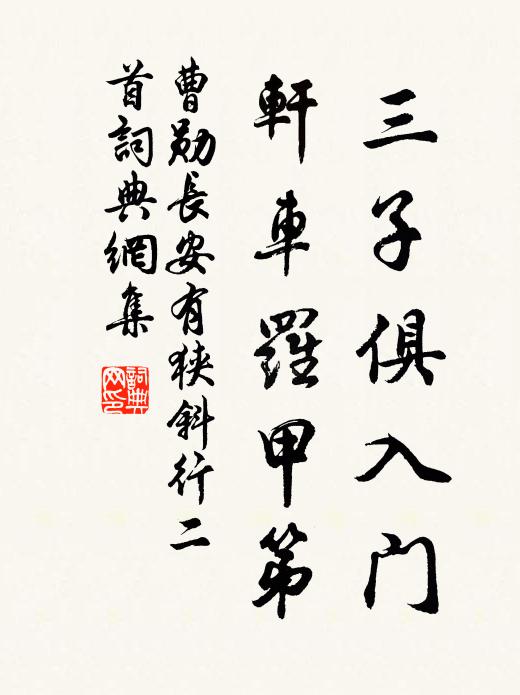 三子俱入門
軒車羅甲第
曹勛長安有狹斜行二
首詞典網集
詞典
网印